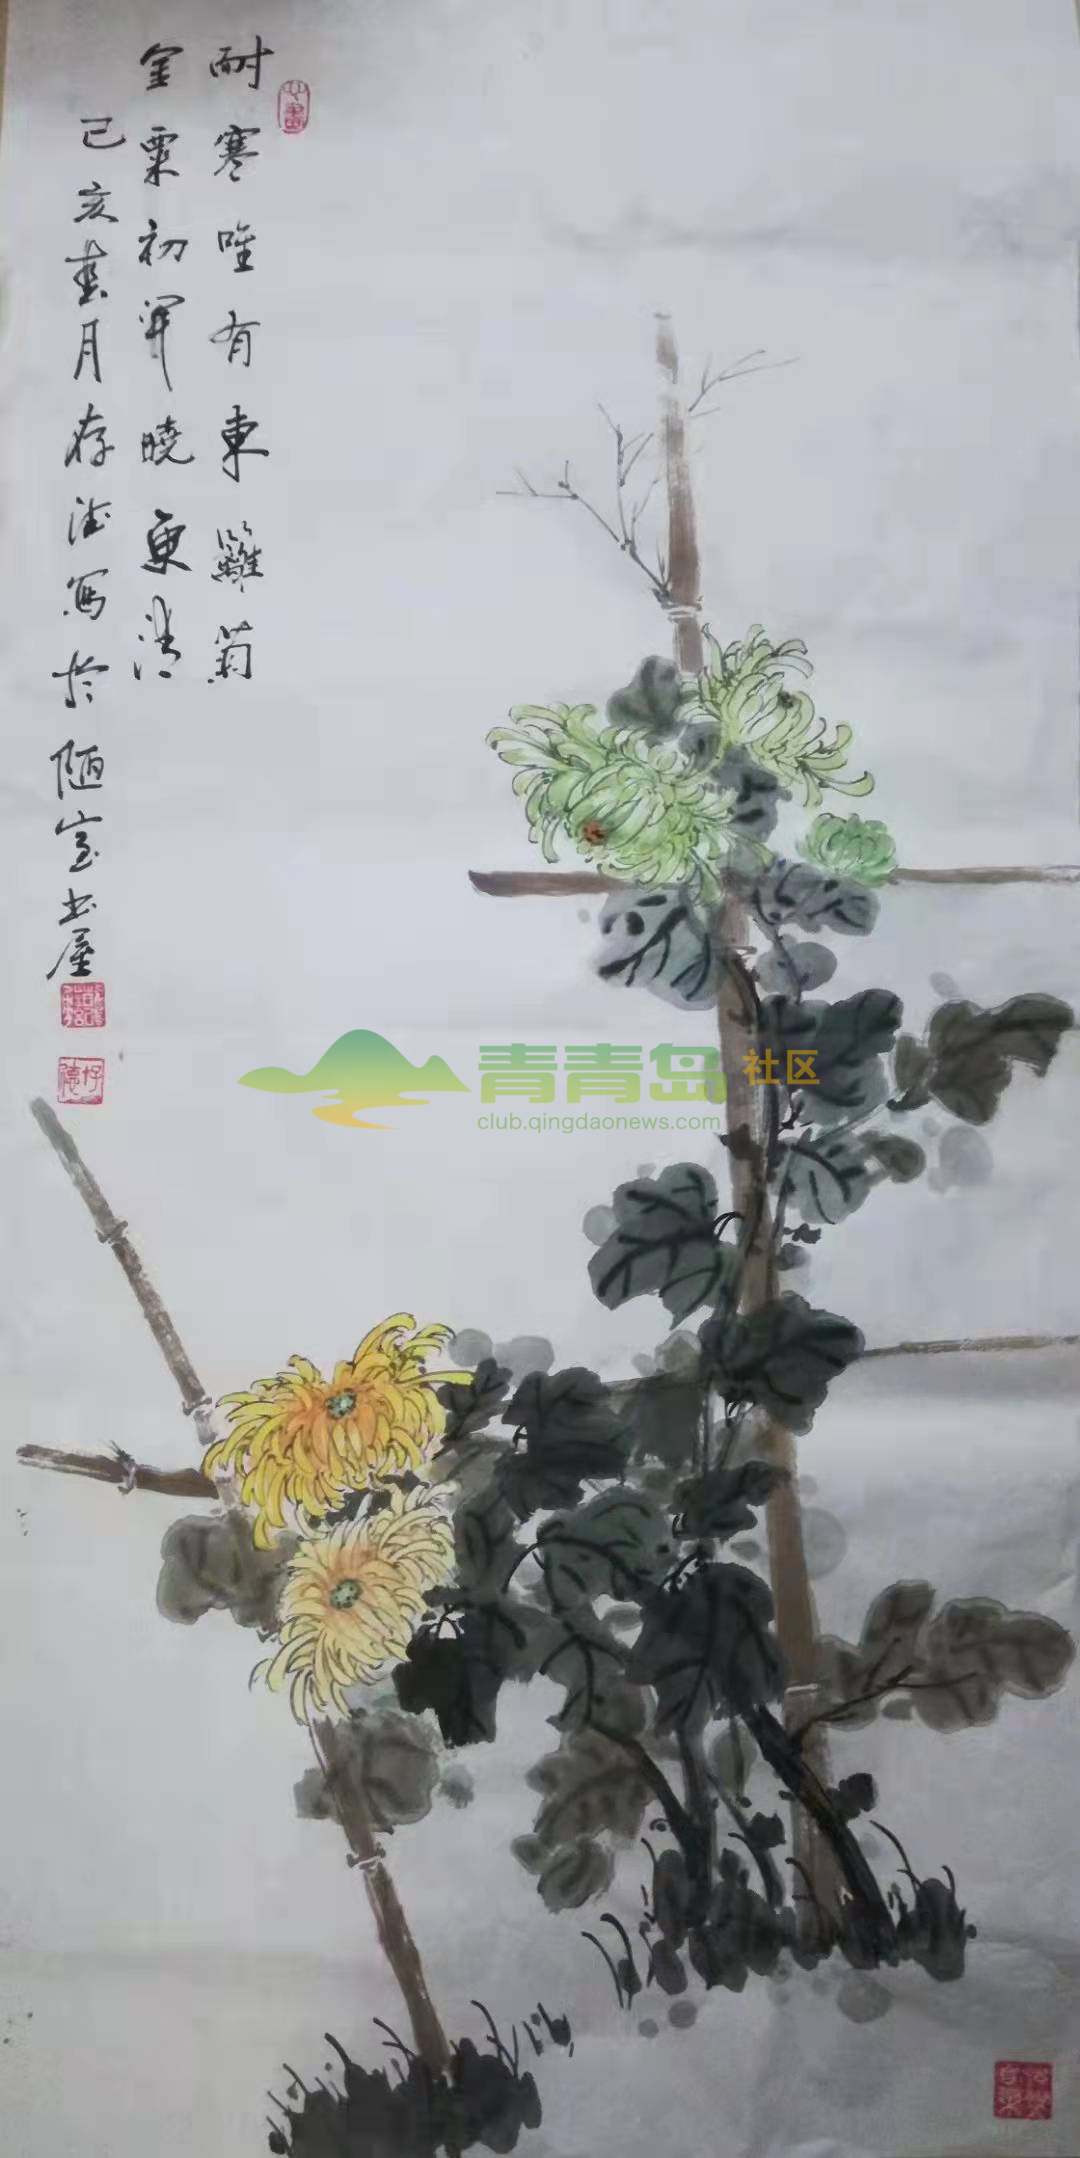 耐寒唯有東籬菊
金粟初開曉更清
己亥春月存德寫於陋室书屋
青青岛社区
club.qingdaonews.com